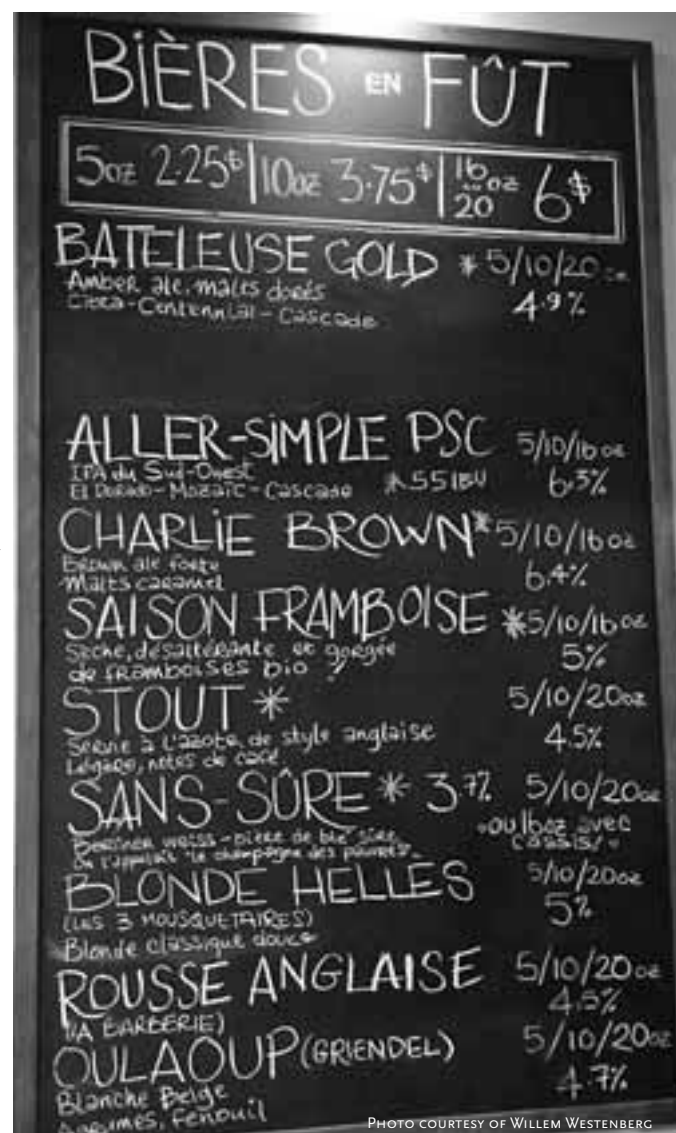 BIÈRES EN FÛT
5oz 2.25$ | 10oz 3.75$ | 16 à 20 oz 6$
BATELEUSE GOLD * 5/10/20 oz
Amber ale, malts dorés 4.9%
Citra-Centennial-Cascade
ALLER-SIMPLE PSC 5/10/16 oz
IPA du Sud-Ouest
El Dorado-Mozaïc-Cascade *55 IBU 6.3%
CHARLIE BROWN* 5/10/16 oz
Brown ale forte 6.4%
Malts caramel
SAISON FRAMBOISE *5/10/16 oz
Sèche, désaltérante et gorgée 5%
de framboises bio !
STOUT * 5/10/20oz
Servie à l'azote, de style anglaise 4.5%
Légère, notes de café
SANS-SÛRE * 3.7% 5/10/20oz
Berliner weiss - bière de blé sûre
ou 16oz avec
cassis!
On l'appelait "le champagne des pauvres"
BLONDE HELLES 5/10/20oz
(LES 3 MOUSQUETAIRES) 5%
Blonde classique douce
ROUSSE ANGLAISE 5/10/20 oz
(LA BARBERIE) 4.5%
OULAOUP (GRIENDEL) 5/10/20oz
Blanche Belge 4.7%
Agrumes, fenouil
PHOTO COURTESY OF WILLEM WESTENBERG